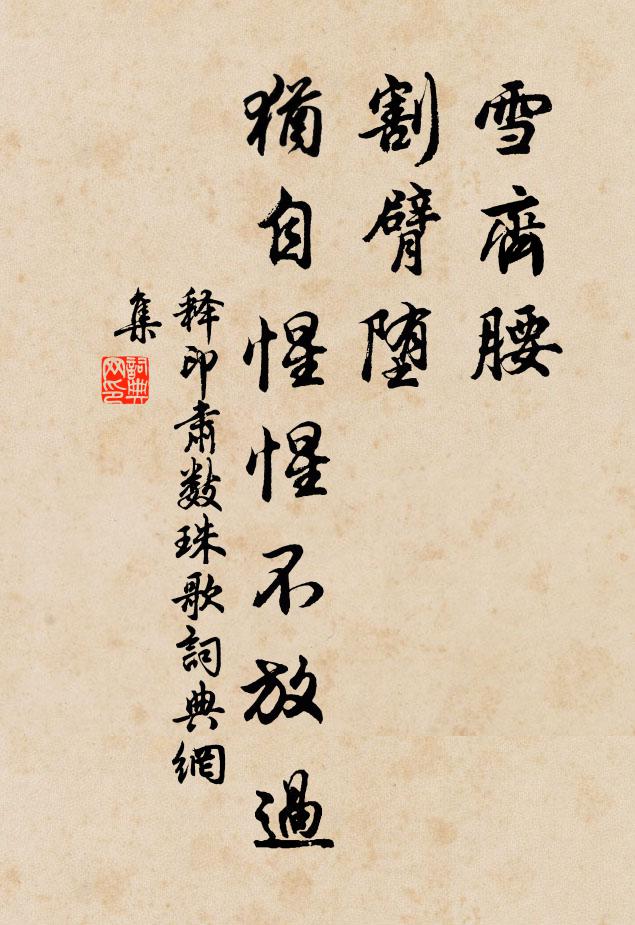 雪齊腰
割臂墮
猶自惺惺不放過
释印肅數珠歌詞典網
集
詞典
网印